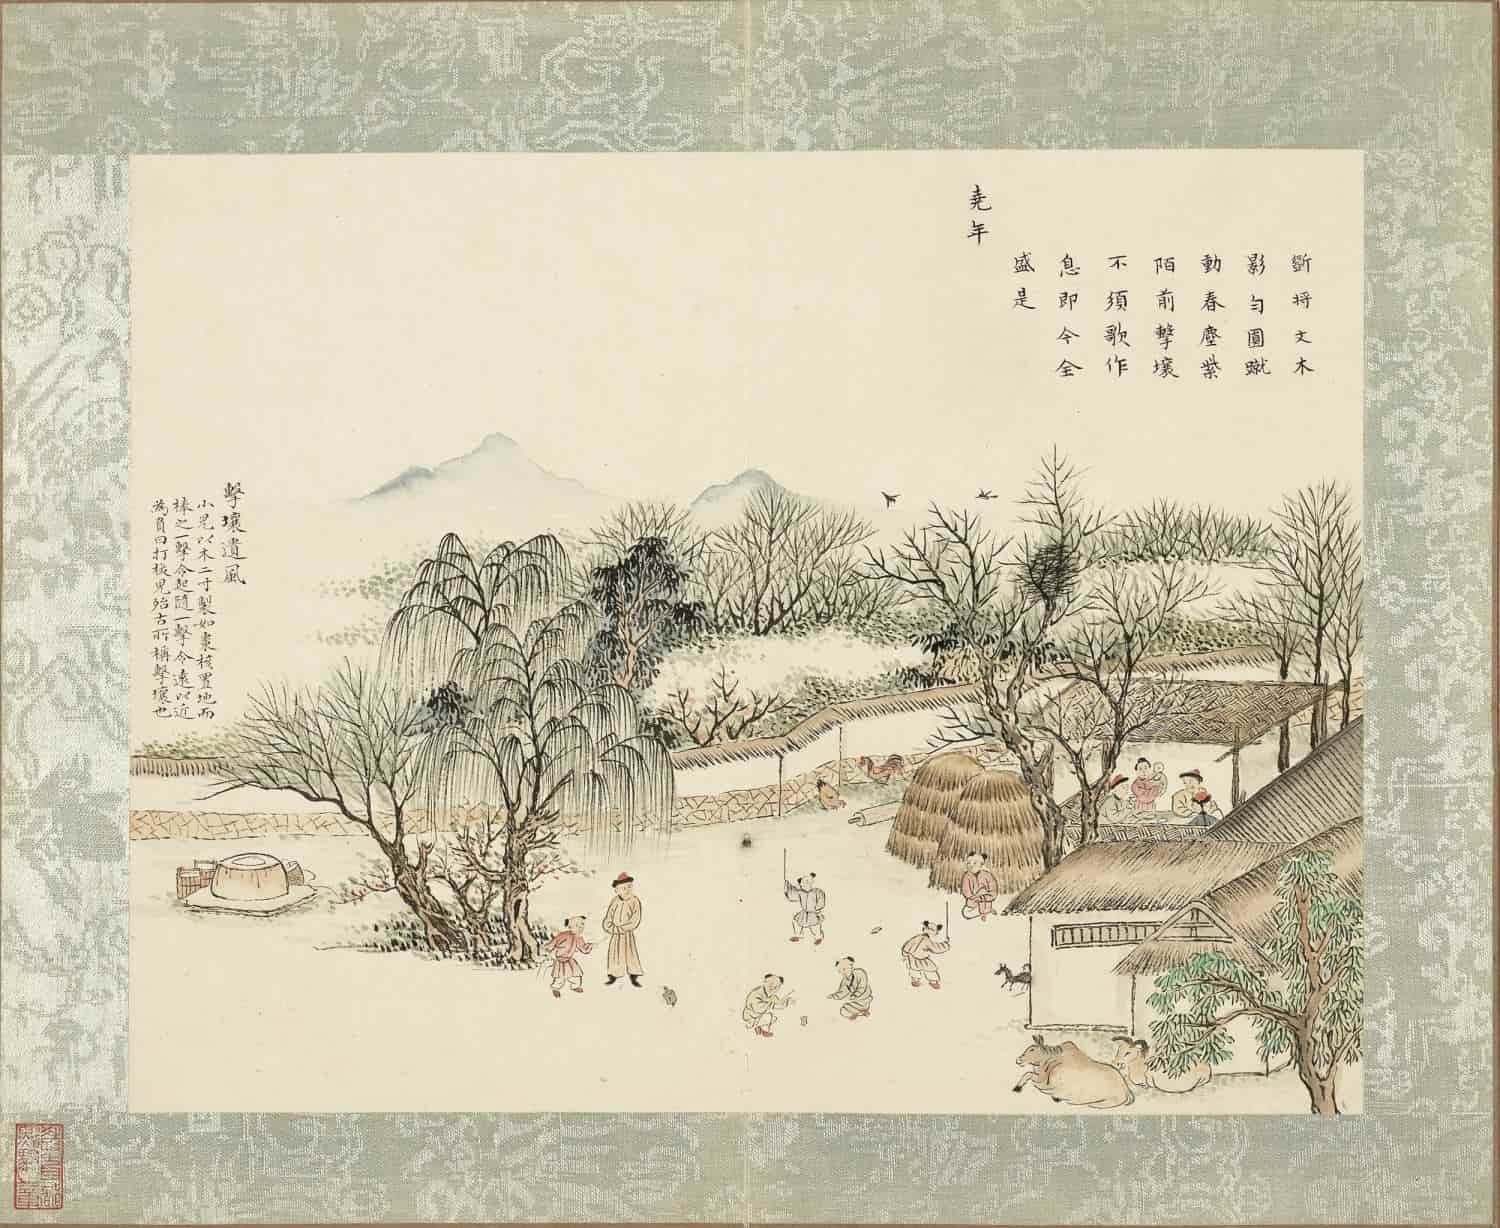 斵将文木
影勻圓蹴
動春塵紫
陌前擊壤
不須歌作
息即今全
盛是
堯年
擊壤遺風
小兒以木二寸製如棗核置地而
棒之一擊令起隨一擊令遠以近
為負曰打柭兒殆古所稱擊壤也